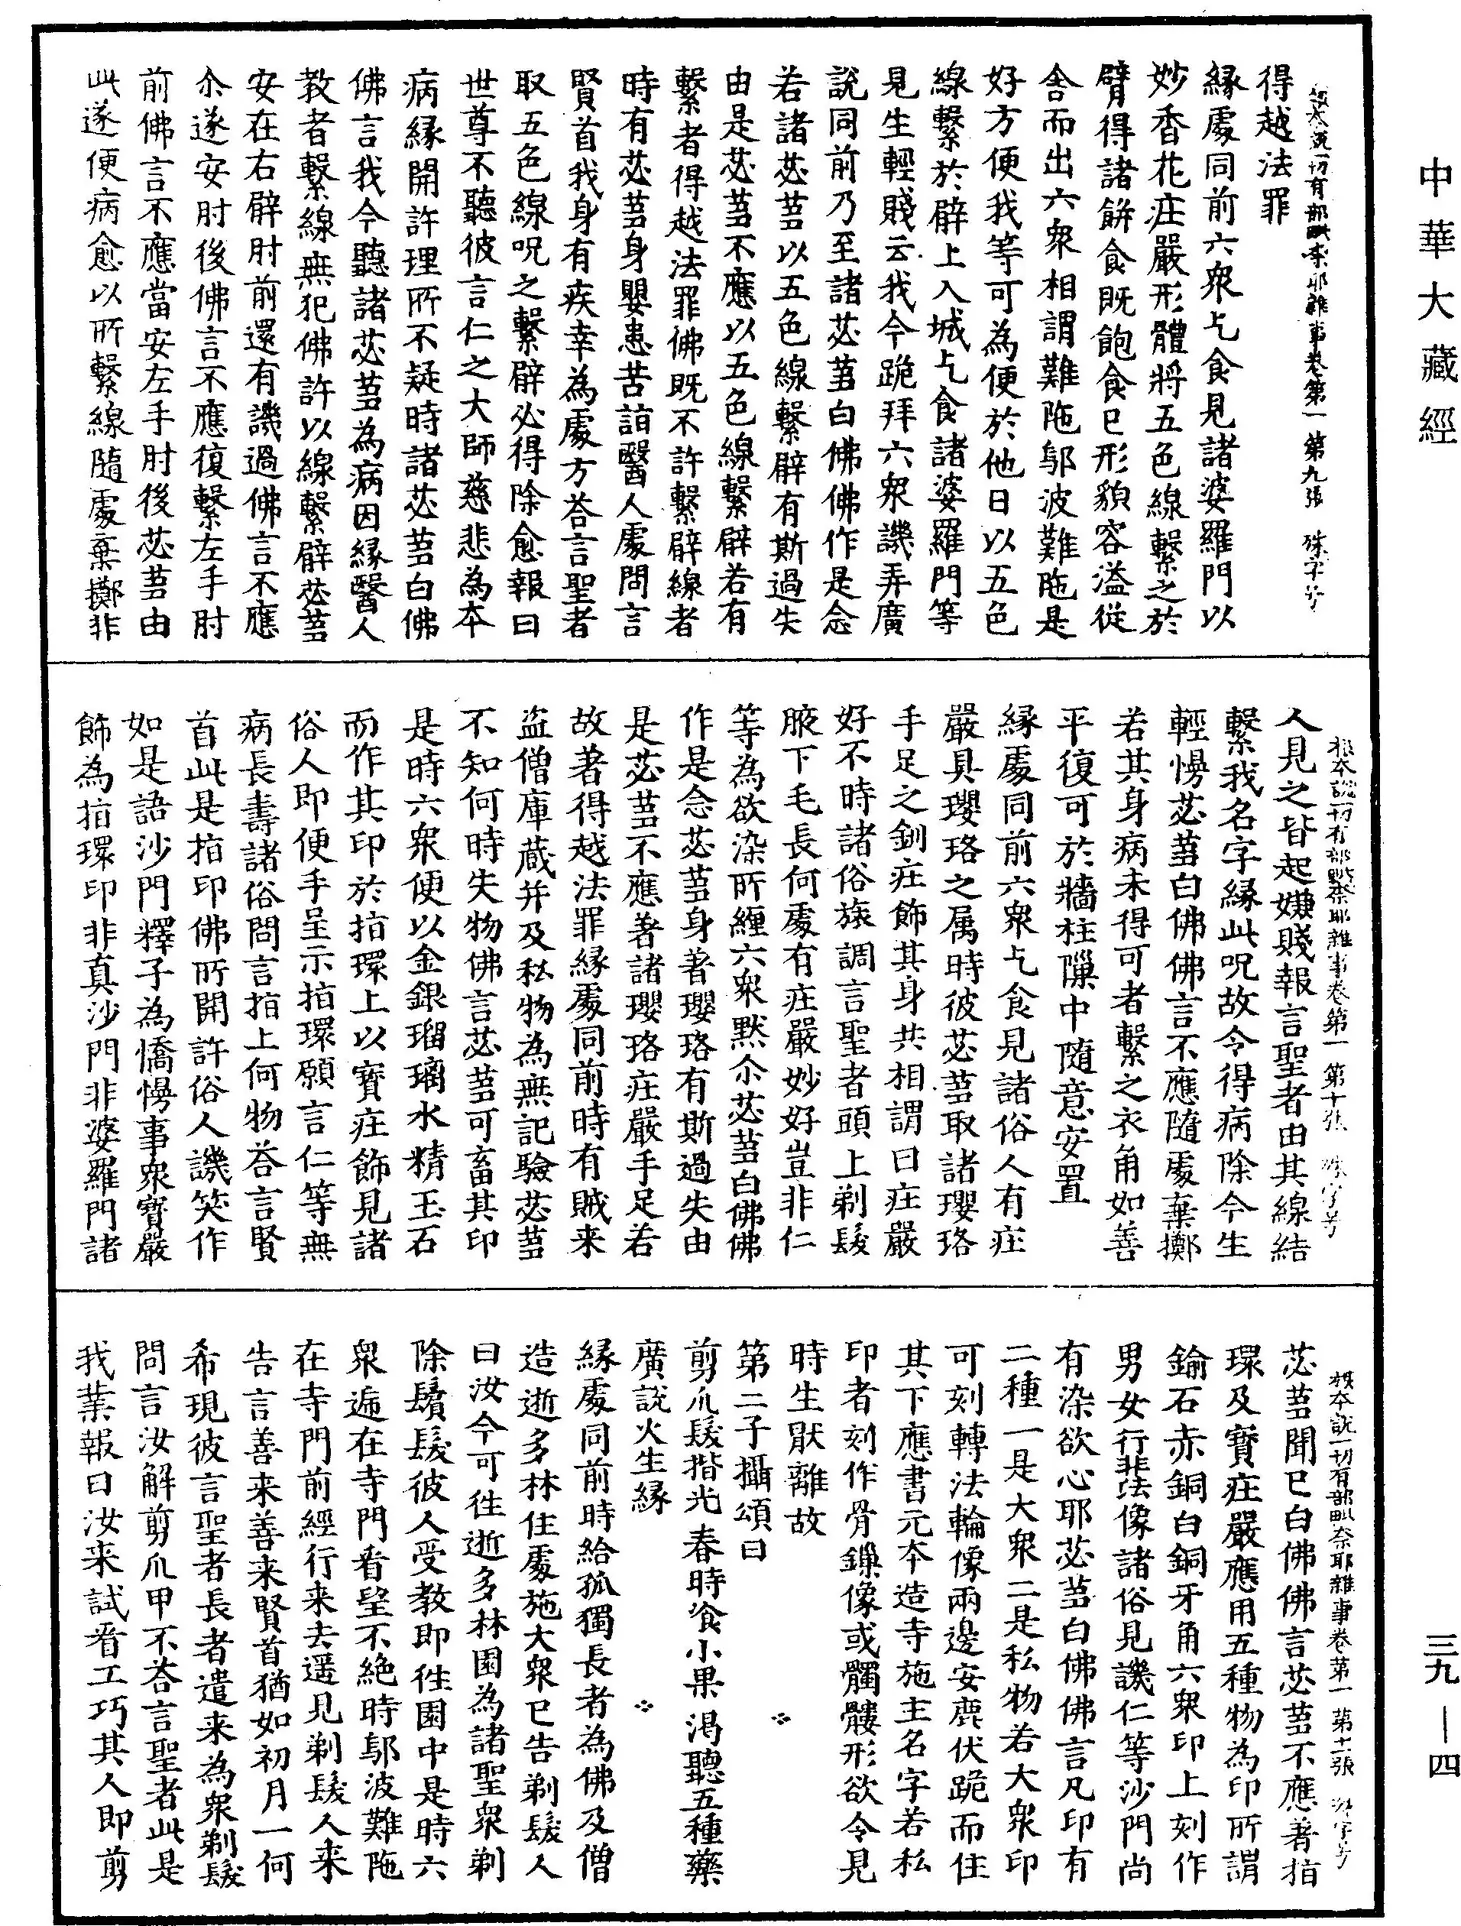 中華大藏經
根本說一切有部毗奈耶雜事卷第一 第九張 殊字号
得越法罪
緣處同前六衆乞食見諸婆羅門以
妙香花庄嚴形體將五色線繫之於
臂得諸餅食既飽食已形貌容溢從
舍而出六衆相謂難陁鄔波難陁是
好方便我等可為便於他日以五色
線繫於臂上入城乞食諸婆羅門等
見生輕賤云我今跪拜六衆譏弄廣
說同前乃至諸苾芻白佛佛作是念
若諸苾芻以五色線繫臂有斯過失
由是苾芻不應以五色線繫臂若有
繫者得越法罪佛既不許繫臂線者
時有苾芻身嬰患苦詣醫人處問言
賢首我身有疾幸為處方荅言聖者
取五色線呪之繫臂必得除愈報曰
世尊不聽彼言仁之大師慈悲為本
病緣開許理所不疑時諸苾芻白佛
佛言我今聽諸苾芻為病因緣醫人
教者繫線無犯佛許以線繫臂苾芻
安在右臂肘前還有譏過佛言不應
尒遂安肘後佛言不應復繫左手肘
前佛言不應當安左手肘後苾芻由
此遂便病愈以所繫線隨處棄擲非
根本說一切有部毗奈耶雜事卷第一 第十張 殊字号
人見之皆起嫌賤報言聖者由其線結
繫我名字緣此呪故令得病除今生
輕慢苾芻白佛佛言不應隨處棄擲
若其身病未得可者繫之衣角如善
平復可於牆柱隟中隨意安置
緣處同前六衆乞食見諸俗人有庄
嚴具瓔珞之属時彼苾芻取諸瓔珞
手足之釧庄飾其身共相謂曰庄嚴
好不時諸俗旅調言聖者頭上剃髮
腋下毛長何處有庄嚴妙好豈非仁
等為欲染所纏六衆默尒苾芻白佛佛
作是念苾芻身著瓔珞有斯過失由
是苾芻不應著諸瓔珞庄嚴手足若
故著得越法罪緣處同前時有賊来
盜僧庫藏并及私物為無記驗苾芻
不知何時失物佛言苾芻可畜其印
是時六衆便以金銀瑠璃水精玉石
而作其印於指環上以寶庄飾見諸
俗人即便手呈示指環願言仁等無
病長壽諸俗問言指上何物荅言賢
首此是指印佛所開許俗人譏笑作
如是語沙門釋子為憍慢事衆寶嚴
飾為指環印非真沙門非婆羅門諸
根本說一切有部毗奈耶雜事卷第一 第十一張 殊字号
苾芻聞已白佛佛言苾芻不應著指
環及寶庄嚴應用五種物為印所謂
鍮石赤銅白銅牙角六衆印上刻作
男女行非法像諸俗見譏仁等沙門尚
有染欲心耶苾芻白佛佛言凡印有
二種一是大衆二是私物若大衆印
可刻轉法輪像兩邊安鹿伏跪而住
其下應書元本造寺施主名字若私
印者刻作骨鏁像或髑髏形欲令見
時生猒離故
第二子攝頌曰
剪爪髮揩光 春時飡小果 渴聽五種藥
廣說火生緣
緣處同前時給孤獨長者為佛及僧
造逝多林住處施大衆已告剃髮人
曰汝今可往逝多林園為諸聖衆剃
除鬚髮彼人受教即徃園中是時六
衆遍在寺門看望不絕時鄔波難陁
在寺門前經行来去遥見剃髮人来
告言善来善来賢首猶如初月一何
希現彼言聖者長者遣来為衆剃髮
問言汝解剪爪甲不荅言聖者此是
我業報曰汝来試看工巧其人即剪
三九—四